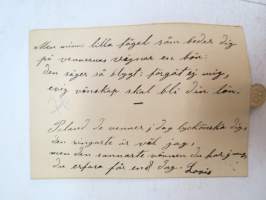 Men minns lilla fågel som beder dig
på vännernas vägnar en bön:
den säger så blygt: forgät ej mig,
evig vänskap skal bli din lön.
—
Bland de venner i dag lyckönska dig,
den ringaste är väl jag,
men den sannaste vännen du har j
du erfara får en d dag. Lovis